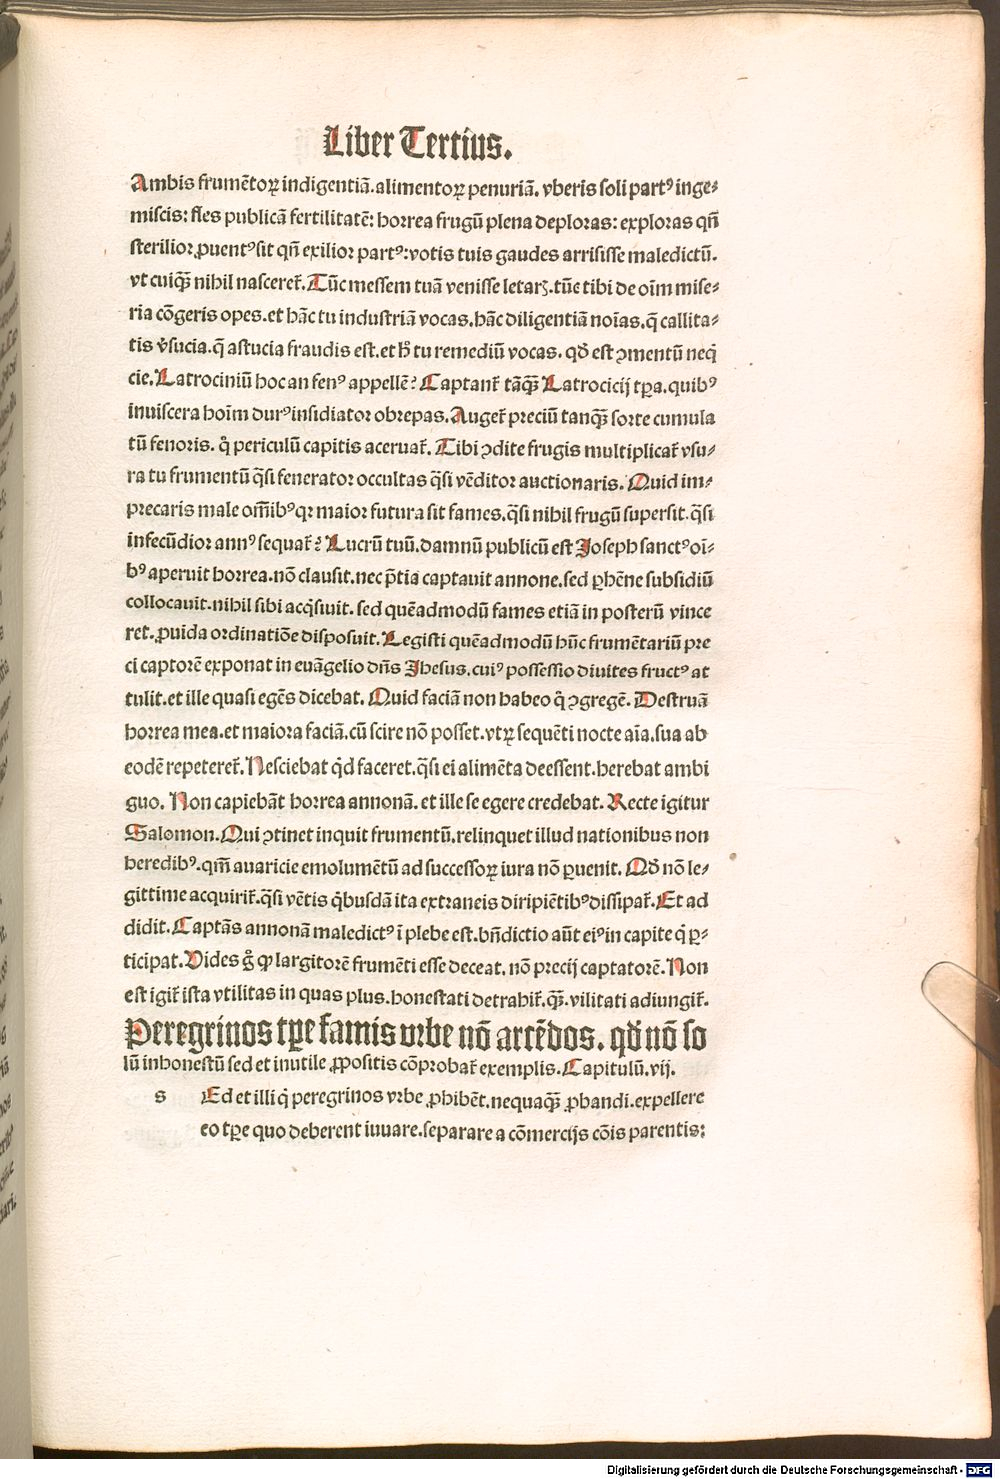 Liber Tertius.
Ambis frumētoꝝ indigentiā.alimentoꝝ penuriā. vberis soli partꝰ inge⸗
miscis: fles publicā fertilitatē: horrea frugū plena deploras: exploras qn̄
sterilior ꝓuentꝰ sit qn̄ exilior partꝰ: votis tuis gaudes arrisisse maledictū.
vt cuiqꝫ nihil nasceret̄. Tūc messem tuā venisse letarꝫ. tūc tibi de oīm mise⸗
ria cōgeris opes. et hāc tu industriā vocas. hāc diligentiā noīas. q̄ callita⸗
tis v̓sucia. q̄ astucia fraudis est. et hͦ tu remediū vocas. qd̄ est ꝯmentū neq̇
cie. Latrociniū hoc an fenꝰ appellē? Captant̄ tāqꝫ Latrocicij tꝑa. quibꝰ
inuiscera hoīm durꝰ insidiator obrepas. Auget̄ preciū tanqꝫ sorte cumula
tū fenoris. q̇ periculū capitis aceruat̄. Tibi ꝯdite frugis multiplicat̄ vsu⸗
ra tu frumentū q̄si fenerator occultas q̄si vēditor auctionaris. Quid im⸗
precaris male om̄ibꝰ qꝛ maior futura sit fames. q̄si nihil frugū supersit. q̄si
infecūdior annꝰ sequat̄? Lucrū tuū. damnū publicū est Joseph sanctꝰ oī⸗
bꝰ aperuit horrea. nō clausit. nec p̄tia captauit annone. sed ꝑhēne subsidiū
collocauit. nihil sibi acq̇siuit. sed quēadmodū fames etiā in posterū vince
ret. ꝓuida ordinatiōe disposuit. Legisti quēadmodū hūc frumētariū pre
ci captorē exponat in euāgelio dn̄s Jhesus. cuiꝰ possessio diuites fructꝰ at
tulit. et ille quasi egēs dicebat. Quid faciā non habeo q̇ ꝯgregē. Destruā
horrea mea. et maiora faciā. cū scire nō posset. vtꝝ sequēti nocte aīa. sua ab
eodē repeteret̄. Nesciebat q̇d faceret. q̄si ei alimēta deessent. herebat ambi
guo. Non capiebāt horrea annonā. et ille se egere credebat. Recte igitur
Salomon. Qui ꝯtinet inquit frumentū. relinquet illud nationibus non
heredibꝰ. qm̄ auaricie emolumētū ad successoꝝ iura nō ꝑuenit. Qd̄ nō le⸗
gittime acquirit̄. q̄si vētis q̇busdā ita extraneis diripiētibꝰ dissipat̄. Et ad
didit. Captās annonā maledictꝰ ī plebe est. bn̄dictio aūt eiꝰ in capite q̇ ꝑ⸗
ticipat. Vides gͦ ꝙ largitorē frumēti esse deceat. nō precij captatorē. Non
est igit̄ ista vtilitas in quas plus. honestati detrahit̄. qꝫ. vilitati adiungit̄.
Peregrinos tꝑe famis vrbe nō arcēdos. qd̄ nō so
lū inhonestū sed et inutile ꝓpositis cōprobat̄ exemplis. Capitulū. vij.
s Ed et illi q̇ peregrinos vrbe ꝓhibēt. nequaqꝫ ꝓbandi. expellere
eo tꝑe quo deberent iuuare. separare a cōmercijs cōis parentis:
Digitalisierung gefördert durch die Deutsche Forschungsgemeinschaft - DFG